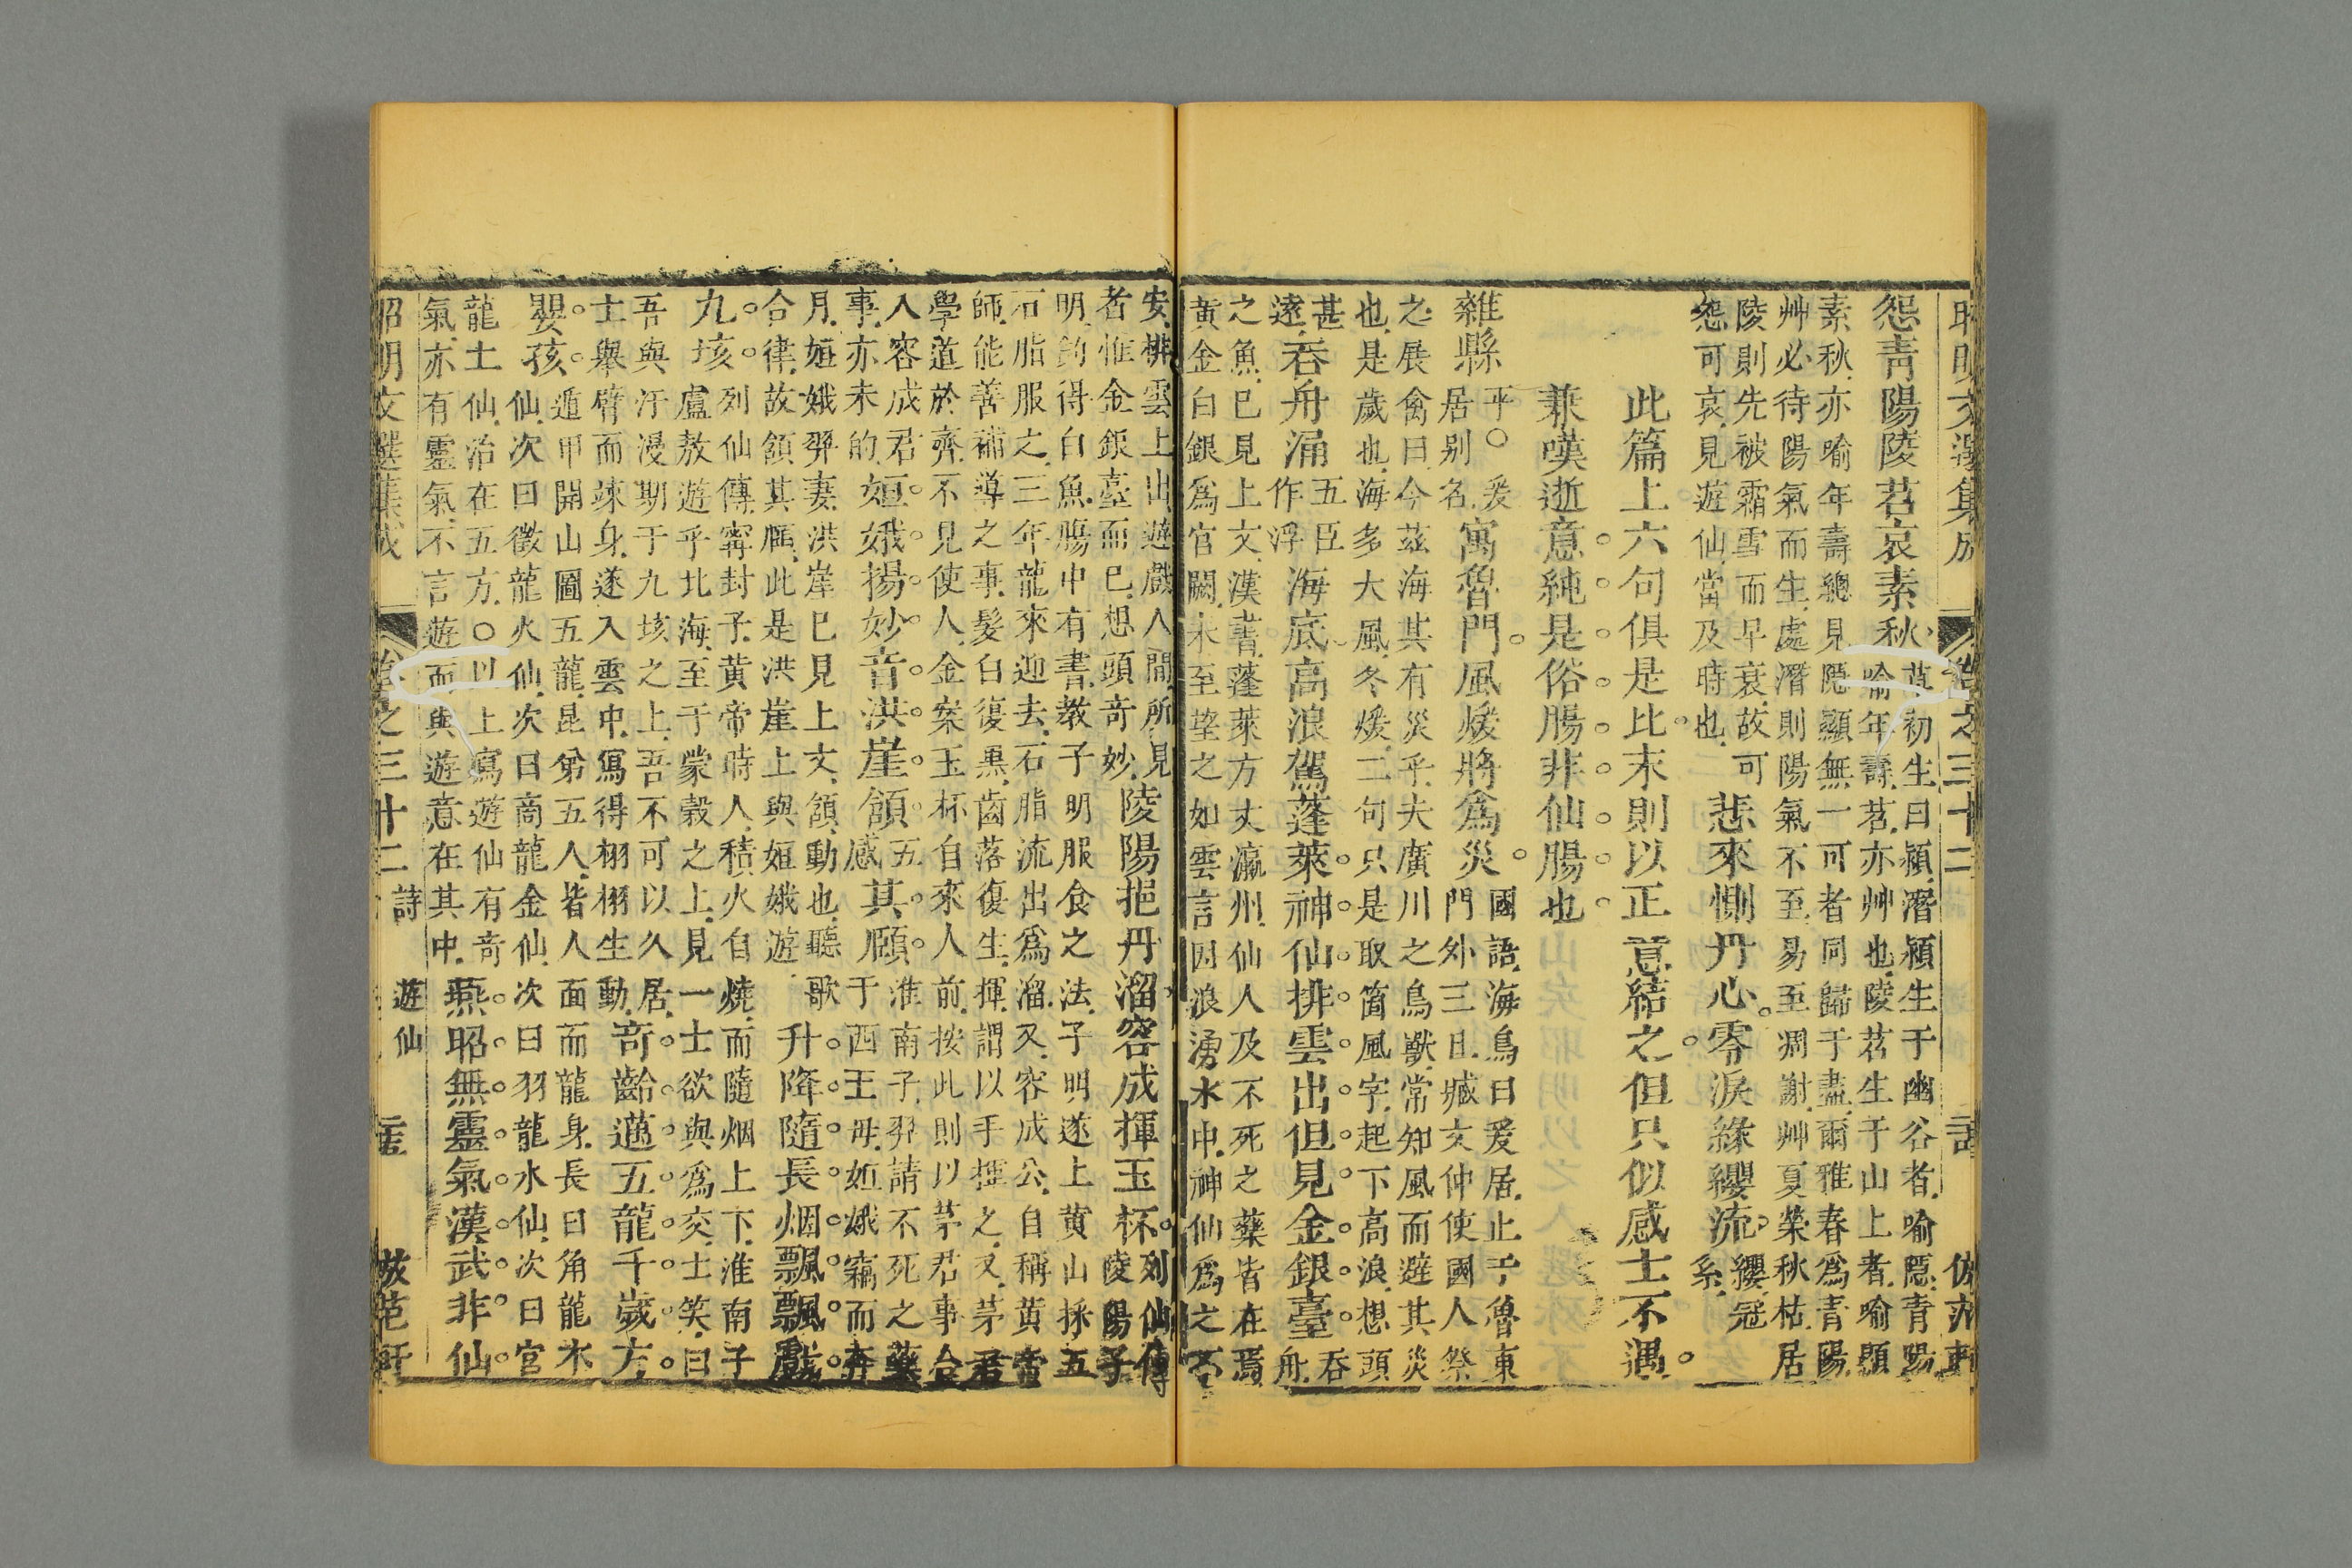 昭明文選集成　卷之三十二　詩　仿范軒
怨青陽陵苕哀素秋
草初生曰穎潛穎生于幽谷者喻隱青陽
喻年壽苕亦艸也陵苕生于山上者喻顯
素秋亦喻年壽總見隱顯無一可者同歸于盡爾雅春爲青陽
艸必待陽氣而生處潛則陽氣不至易至凋謝艸夏榮秋枯居
陵則先被霜雪而早衰故可
怨可哀見遊仙當及時也
悲來惻丹心零淚緣纓流
纓冠
系
此篇上六句俱是比末則以正意結之但只似感士不遇
兼嘆逝意純是俗腸非仙腸也
雜縣
平○爰
居别名
寓魯門風煖將爲災
國語海鳥曰爰居止于魯東
門外三日臧文仲使國人祭
之展禽曰今茲海其有災乎夫廣川之鳥獸常知風而避其災
也是歲也海多大風冬煖二句只是取箇風字起下高浪想頭
甚
遠
吞舟涌
五臣
作浮
海底高浪駕蓬萊神仙排雲出但見金銀臺
吞
舟
之魚已見上文漢書蓬萊方丈瀛州仙人及不死之藥皆在焉
黄金白銀爲官闕未至望之如雲言因浪湧水中神仙爲之不
安排雲上出遊戲人間所見
者惟金銀臺而已想頭奇妙
陵陽挹丹溜容成揮玉杯
列仙傳
陵陽子
明釣得白魚腸中有書教子明服食之法子明遂上黄山採五
石脂服之三年龍來迎去石脂流出爲溜又容成公自稱黄帝
師能善補導之事髮白復黒齒落復生揮謂以手揮之又茅君
學道於齊不見使人金案玉杯自來人前按此則以茅君事合
入容成君
事亦未的
姮娥揚妙音洪崖頷
五
感
其頤
淮南子羿請不死之藥
于西王母姮娥竊而奔
月姮娥羿妻洪崖已見上文頷動也聽歌
合律故頷其頤此是洪崖上與姮娥遊
升降隨長烟飄飄戲
九垓
列仙傳寗封子黄帝時人積火自燒而隨烟上下淮南子
盧敖遊乎北海至于蒙穀之上見一士欲與爲交士笑曰
吾與汗漫期于九垓之上吾不可以久居
士舉臂而竦身遂入雲中寫得栩栩生動
奇齡邁五龍千歲方
嬰孩
遁甲開山圖五龍昆弟五人皆人面而龍身長曰角龍木
仙次曰徵龍火仙次曰商龍金仙次曰羽龍水仙次曰宮
龍土仙治在五方○以上寫遊仙有奇
氣亦有靈氣不言遊而與遊意在其中
燕昭無靈氣漢武非仙
昭明文選集成　卷之三十二　詩　遊仙　仿范軒